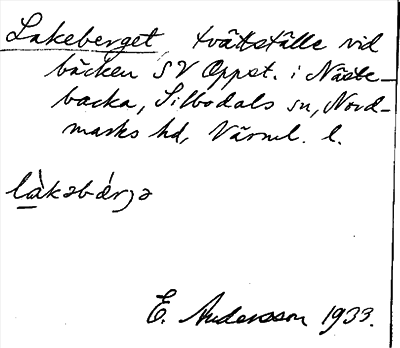 Lakeberget, tvättställe vid
bäcken SV Oppst. i Näste-
backa, Silbodals sn, Nord-
marks hd, Värml. l.
làkəbǽrjə
E. Andersson 1933.